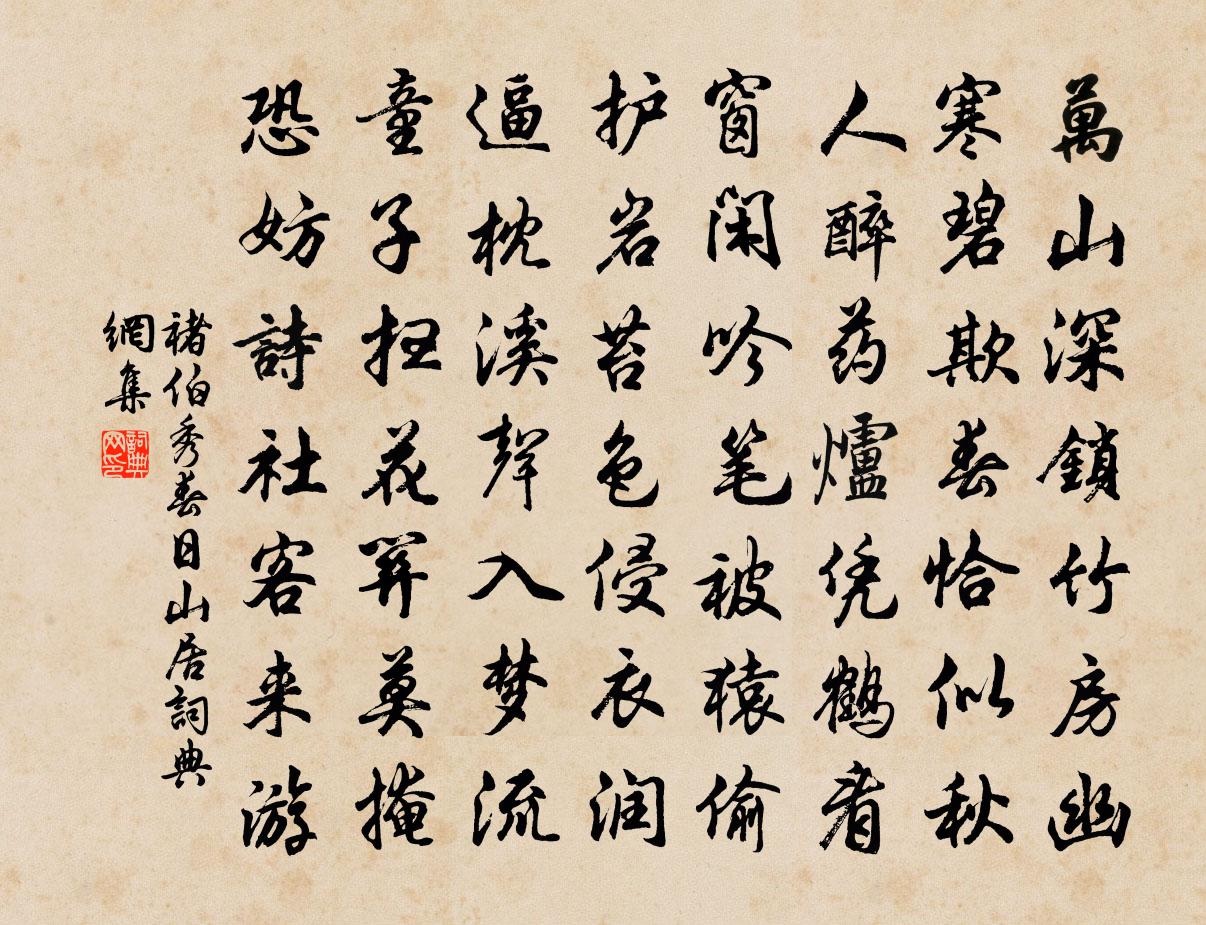 萬山深鎖竹房幽
寒碧欺春恰似秋
人醉药爐凭鶴看
窗闲吟笔被猿偷
护岩苔色侵衣润
逼枕溪聲入梦流
童子扫花開莫掩
恐妨詩社客来游
褚伯秀春日山居詞典
網集
詞典网印